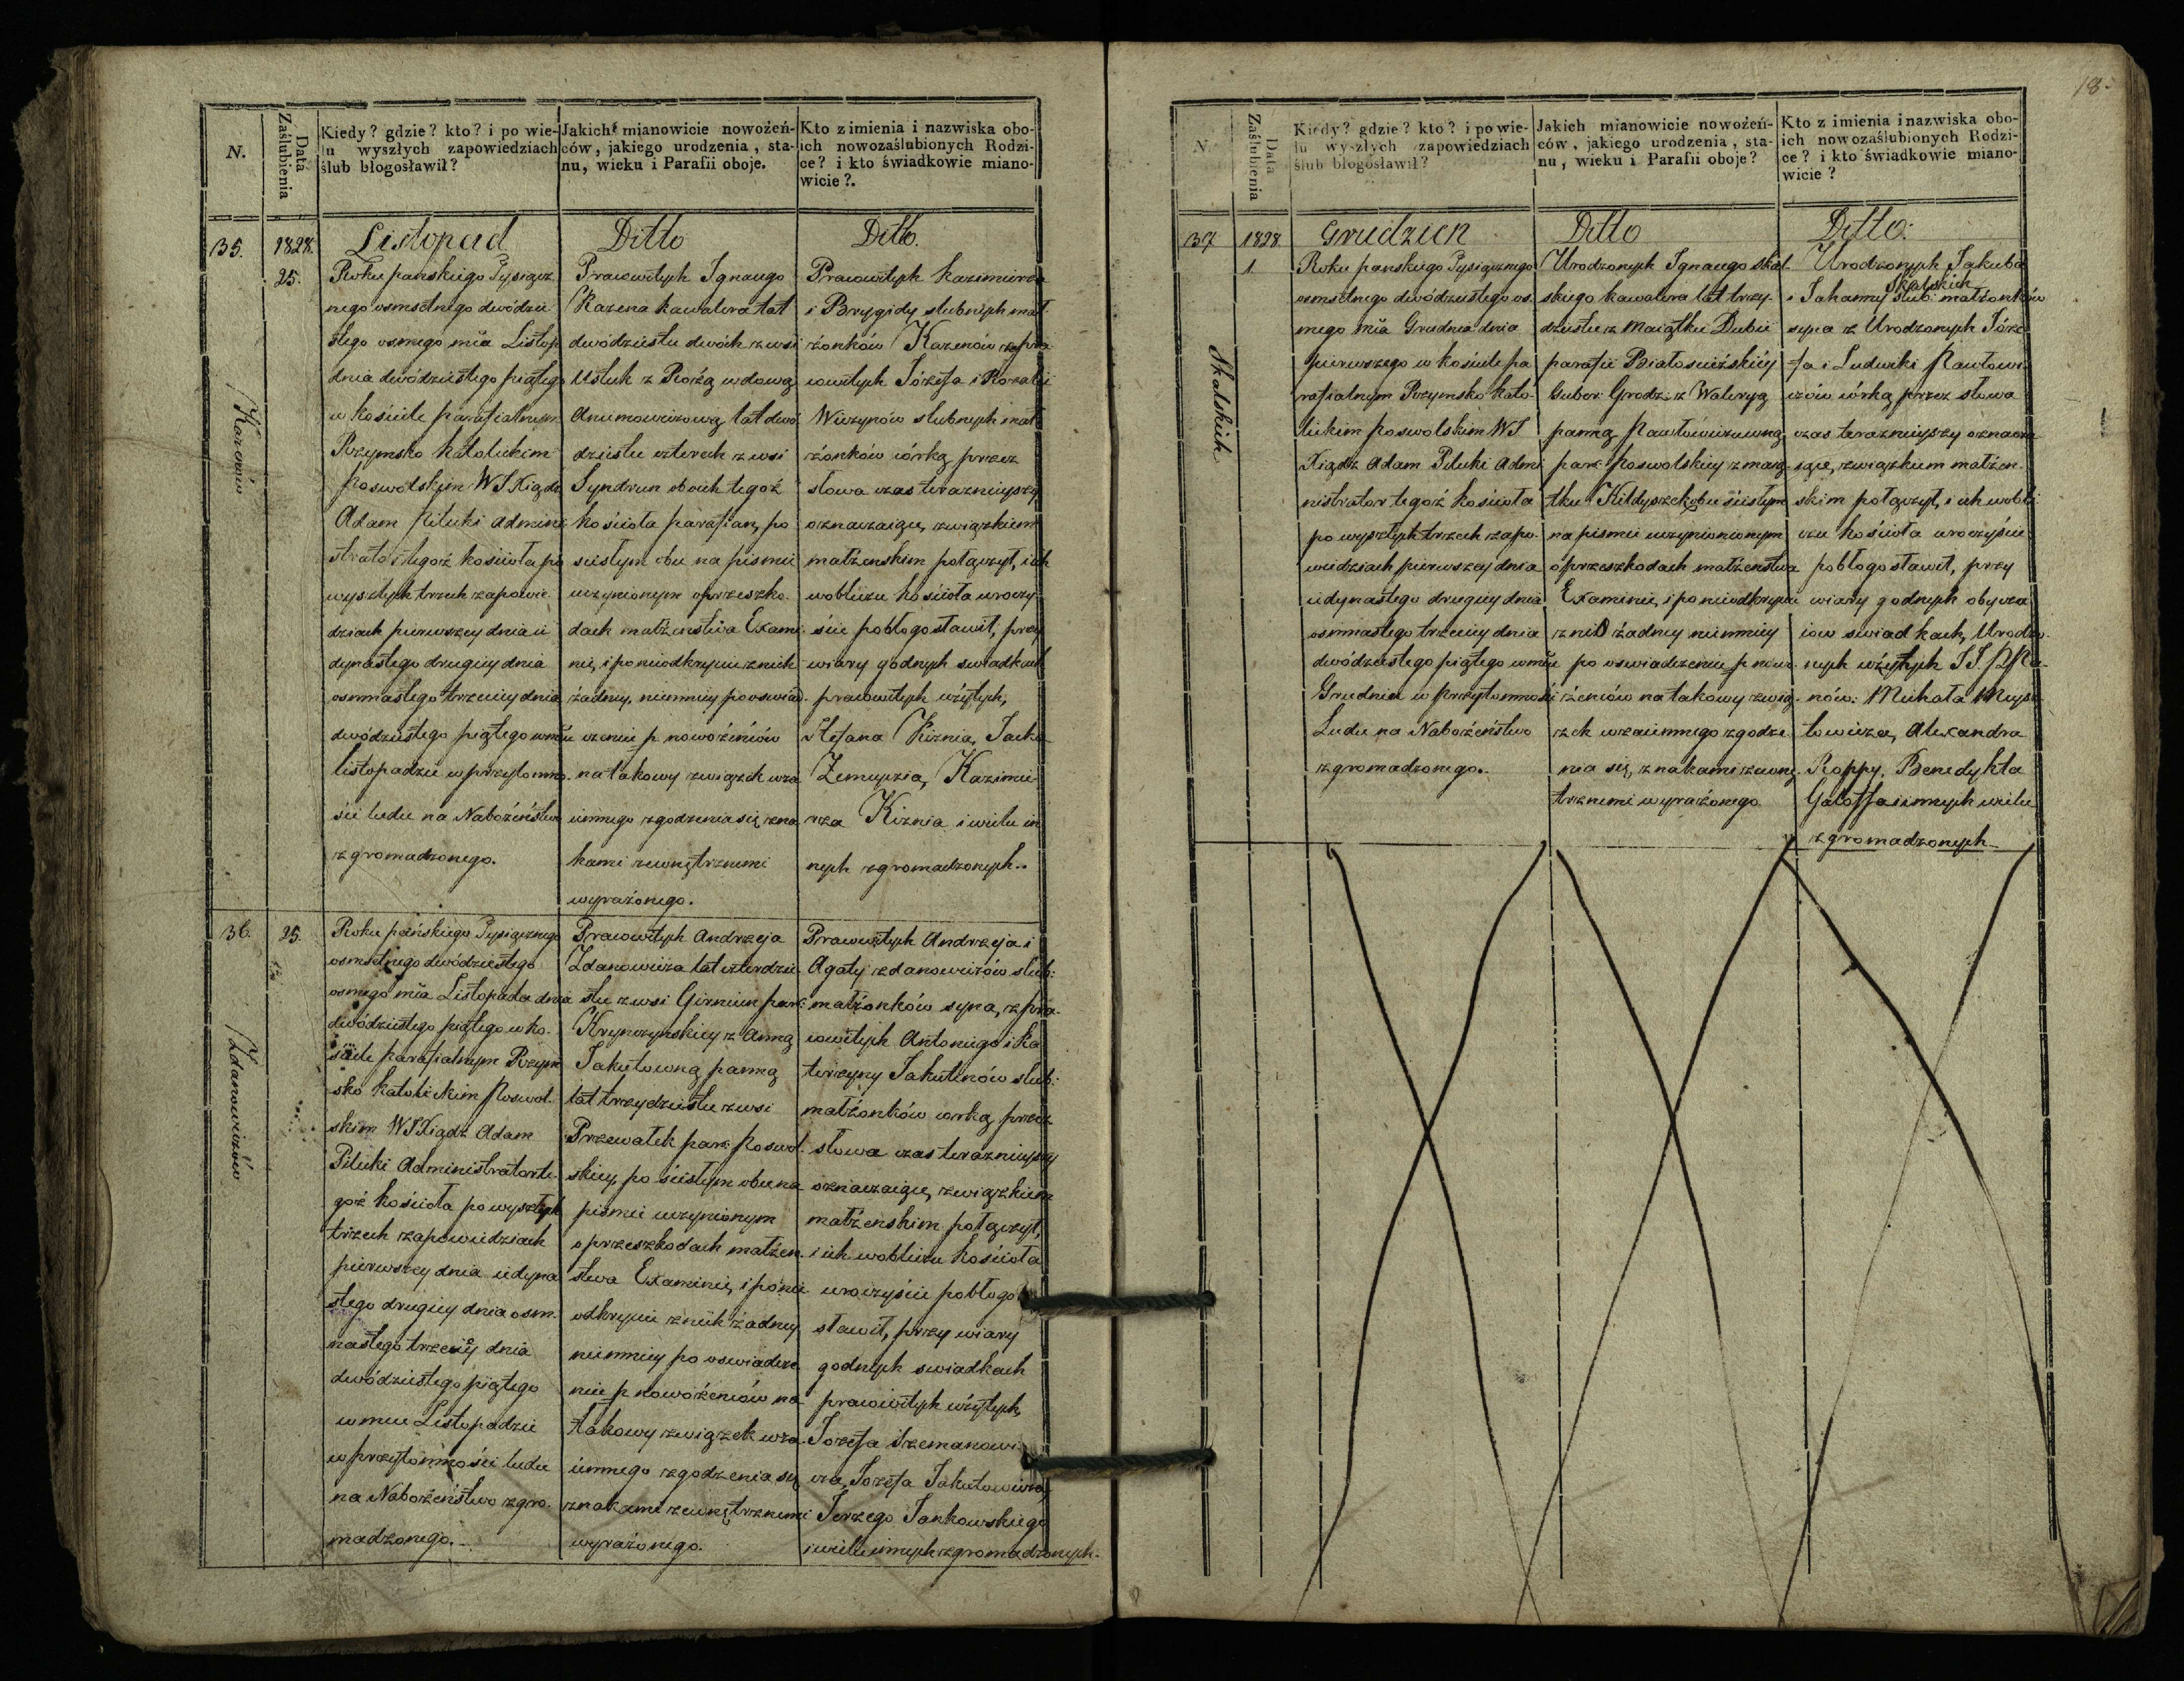 18
N.
Data Zaślubienia
Kiedy? gdzie? kto? i po wie-
lu wyszłych zapowiedziach
ślub błogosławił?
Jakich mianowicie nowożeń-
ców, jakiego urodzenia, sta-
nu, wieku i Parafii oboje.
Kto z imienia i nazwiska obo-
ich nowozaślubionych Rodzi-
ce? i kto świadkowie miano-
wicie?.
35.
1828.
25.
Kazenów
Listopad
Roku pańskiego Tysiącz
nego osmsetnego dwódzie
stego osmego mca Listop
dnia dwódziestego piątego
w kościele parafialnym
Rzymsko Katolickim
Poswolskim WJ Xiądz
Adam Pilicki Admini
strator tegoż kościoła po
wyszłych trzech zapowie
dziach pierwszey dnia ie
dynastego drugiey dnia
osmnastego trzeciey dnia
dwódziestego piątego wmcu
listopadzie w przytomno
ści ludu na Nabożeństwo
zgromadzonego.
Ditto
Prawowitych Ignacego
Kazena kawalera lat
dwódziestu dwóch zwsi
Ustuk z Rozą wdową
Anumowiczową lat dwó
dziestu czterech zwsi
Syndrun oboch tegoż
kościoła parafian, po
scisłym obu na pismie
uczynionym oprzeszko
dach małżeństwa Exami
nie, i ponieodkryciu znich
żadney, niemniey pooswiad
czeniu p nowożeńców
na takowy związek wza
iemnego zgodzenia się zna
kami zewnętrznemi
wyrażonego.
Ditto.
Prawowitych Kazimierza
i Brygidy slubnych mał
żonków Kazenów z pra
wowitych Józefa i Rozalii
Wiczynów slubnych mał
żonków córką przez
słowa czas terazniejszy
oznaczaiące, związkiem
małżenskim połączył, i ich
wobliczu kościoła uroczy
ście pobłogosławił, przy
wiary godnych swiadkach
prawowitych wżiętych,
Stefana Kiznia, Jacka
Zemuyzia, Kazimie
rza Kiznia i wielu in
nych zgromadzonych..
36.
25.
Zdanowiczów
Roku pańskiego Tysiącznego
osmsetnego dwódziestego
osmego mca Listopada dnia
dwódziestego piątego w ko
ściele parafialnym Rzym
sko Katolickim Poswol
skim WJ Xiądz Adam
Pilicki Administrator te
goż kościoła po wyszłych
trzech zapowiedziach
pierwszey dnia iedyna
stego drugiey dnia osm
nastego trzeciey dnia
dwódziestego piątego
w mcu Listopadzie
w przytomności ludu
na Nabożeństwo zgro
madzonego.
Prawowitych Andrzeja
Zdanowicza lat czterdzie
stu zwsi Girniun par:
Krynczynskiey z Anną
Jakutowną panną
lat trzydziestu zwsi
Przewałek par: Poswol
skiey, po ścisłym obu na
pismie uczynionym
o przeszkodach małżen
stwa Examinie, i ponie
odkryciu znich żadney
niemniey po oswiadcze
niu p nowożeńców na
takowy związek wza
iemnego zgodzenia się
znakami zewnętrznemi
wyrażonego.
Prawowitych Andrzeja i
Agaty Zdanowiczów slub:
małżonków syna, z pra
wowitych Antoniego i Ka
terzyny Jakutinów slub:
małżonków corką, przez
słowa czas terazniejszy
oznaczaiące, związkiem
małżenskim połączył,
i ich wobliczu kościoła
uroczyście pobłogo
sławił, przy wiary
godnych swiadkach
prawowitych wżiętych,
Jozefa Szemanowi
cza, Jozefa Jakutowicza,
Jerzego Jankowskiego
i wielu innych zgromadzonych.
N.
Data Zaślubienia
Kiedy? gdzie? kto? i po wie-
lu wyszłych zapowiedziach
ślub błogosławił?
Jakich mianowicie nowożeń-
ców, jakiego urodzenia, sta-
nu, wieku i Parafii oboje?
Kto z imienia i nazwiska obo-
ich nowozaślubionych Rodzi-
ce? i kto świadkowie miano-
wicie?
37
1828
1
Skalskich
Grudzien
Roku panskiego Tysiącznego
osmsetnego dwódziestego os
mego mca Grudnia dnia
pierwszego w kościele pa
rafialnym Rzymsko Kato
lickim Poswolskim WJ
Xiądz Adam Pilicki Admi
nistrator tegoż kościoła
po wyszłych trzech zapo
wiedziach pierwszey dnia
iedynastego drugiey dnia
osmnastego trzeciey dnia
dwódziestego piątego wmcu
Grudniu w przytomności
Ludu na Nabożeństwo
zgromadzonego.
Ditto
Urodzonych Ignacego Skal
skiego kawalera lat trzy
dziestu z Maiątku Dubie
parafii Białosuiżskiéy
Guber: Grodz: z Waleryą
panną Pawłowiczówną
par: Poswolskiey z maią
tku Kiłdyszek obu scisłym
na pismie uczynionionym
o przeszkodach małżeństwa
Examinie, i po nieodkryciu
z nich żadney niemniey
po oswiadczeniu p nowo
żeńców na takowy zwią
zek wzaiemnego zgodze
nia się, znakami zewnę
trznemi wyrażonego
Ditto.
Urodzonych Jakuba
Skalskich
i Johanny slub: małżonków
syna z Urodzonych Józe
fa i Ludwiki Pawłowi
czów córką przez słowa
czas terazniejszy oznacza
iące, związkiem małżen
skim połączył, i ich wobli
czu kościoła uroczyście
pobłogosławił, przy
wiary godnych obywa
iow swiadkach, Urodzo
nych wżiętych JJ. PPa
nów: Michała Mysz
towicza, Alexandra
Roppy, Benedykta
Gałoffa i innych wielu
zgromadzonych